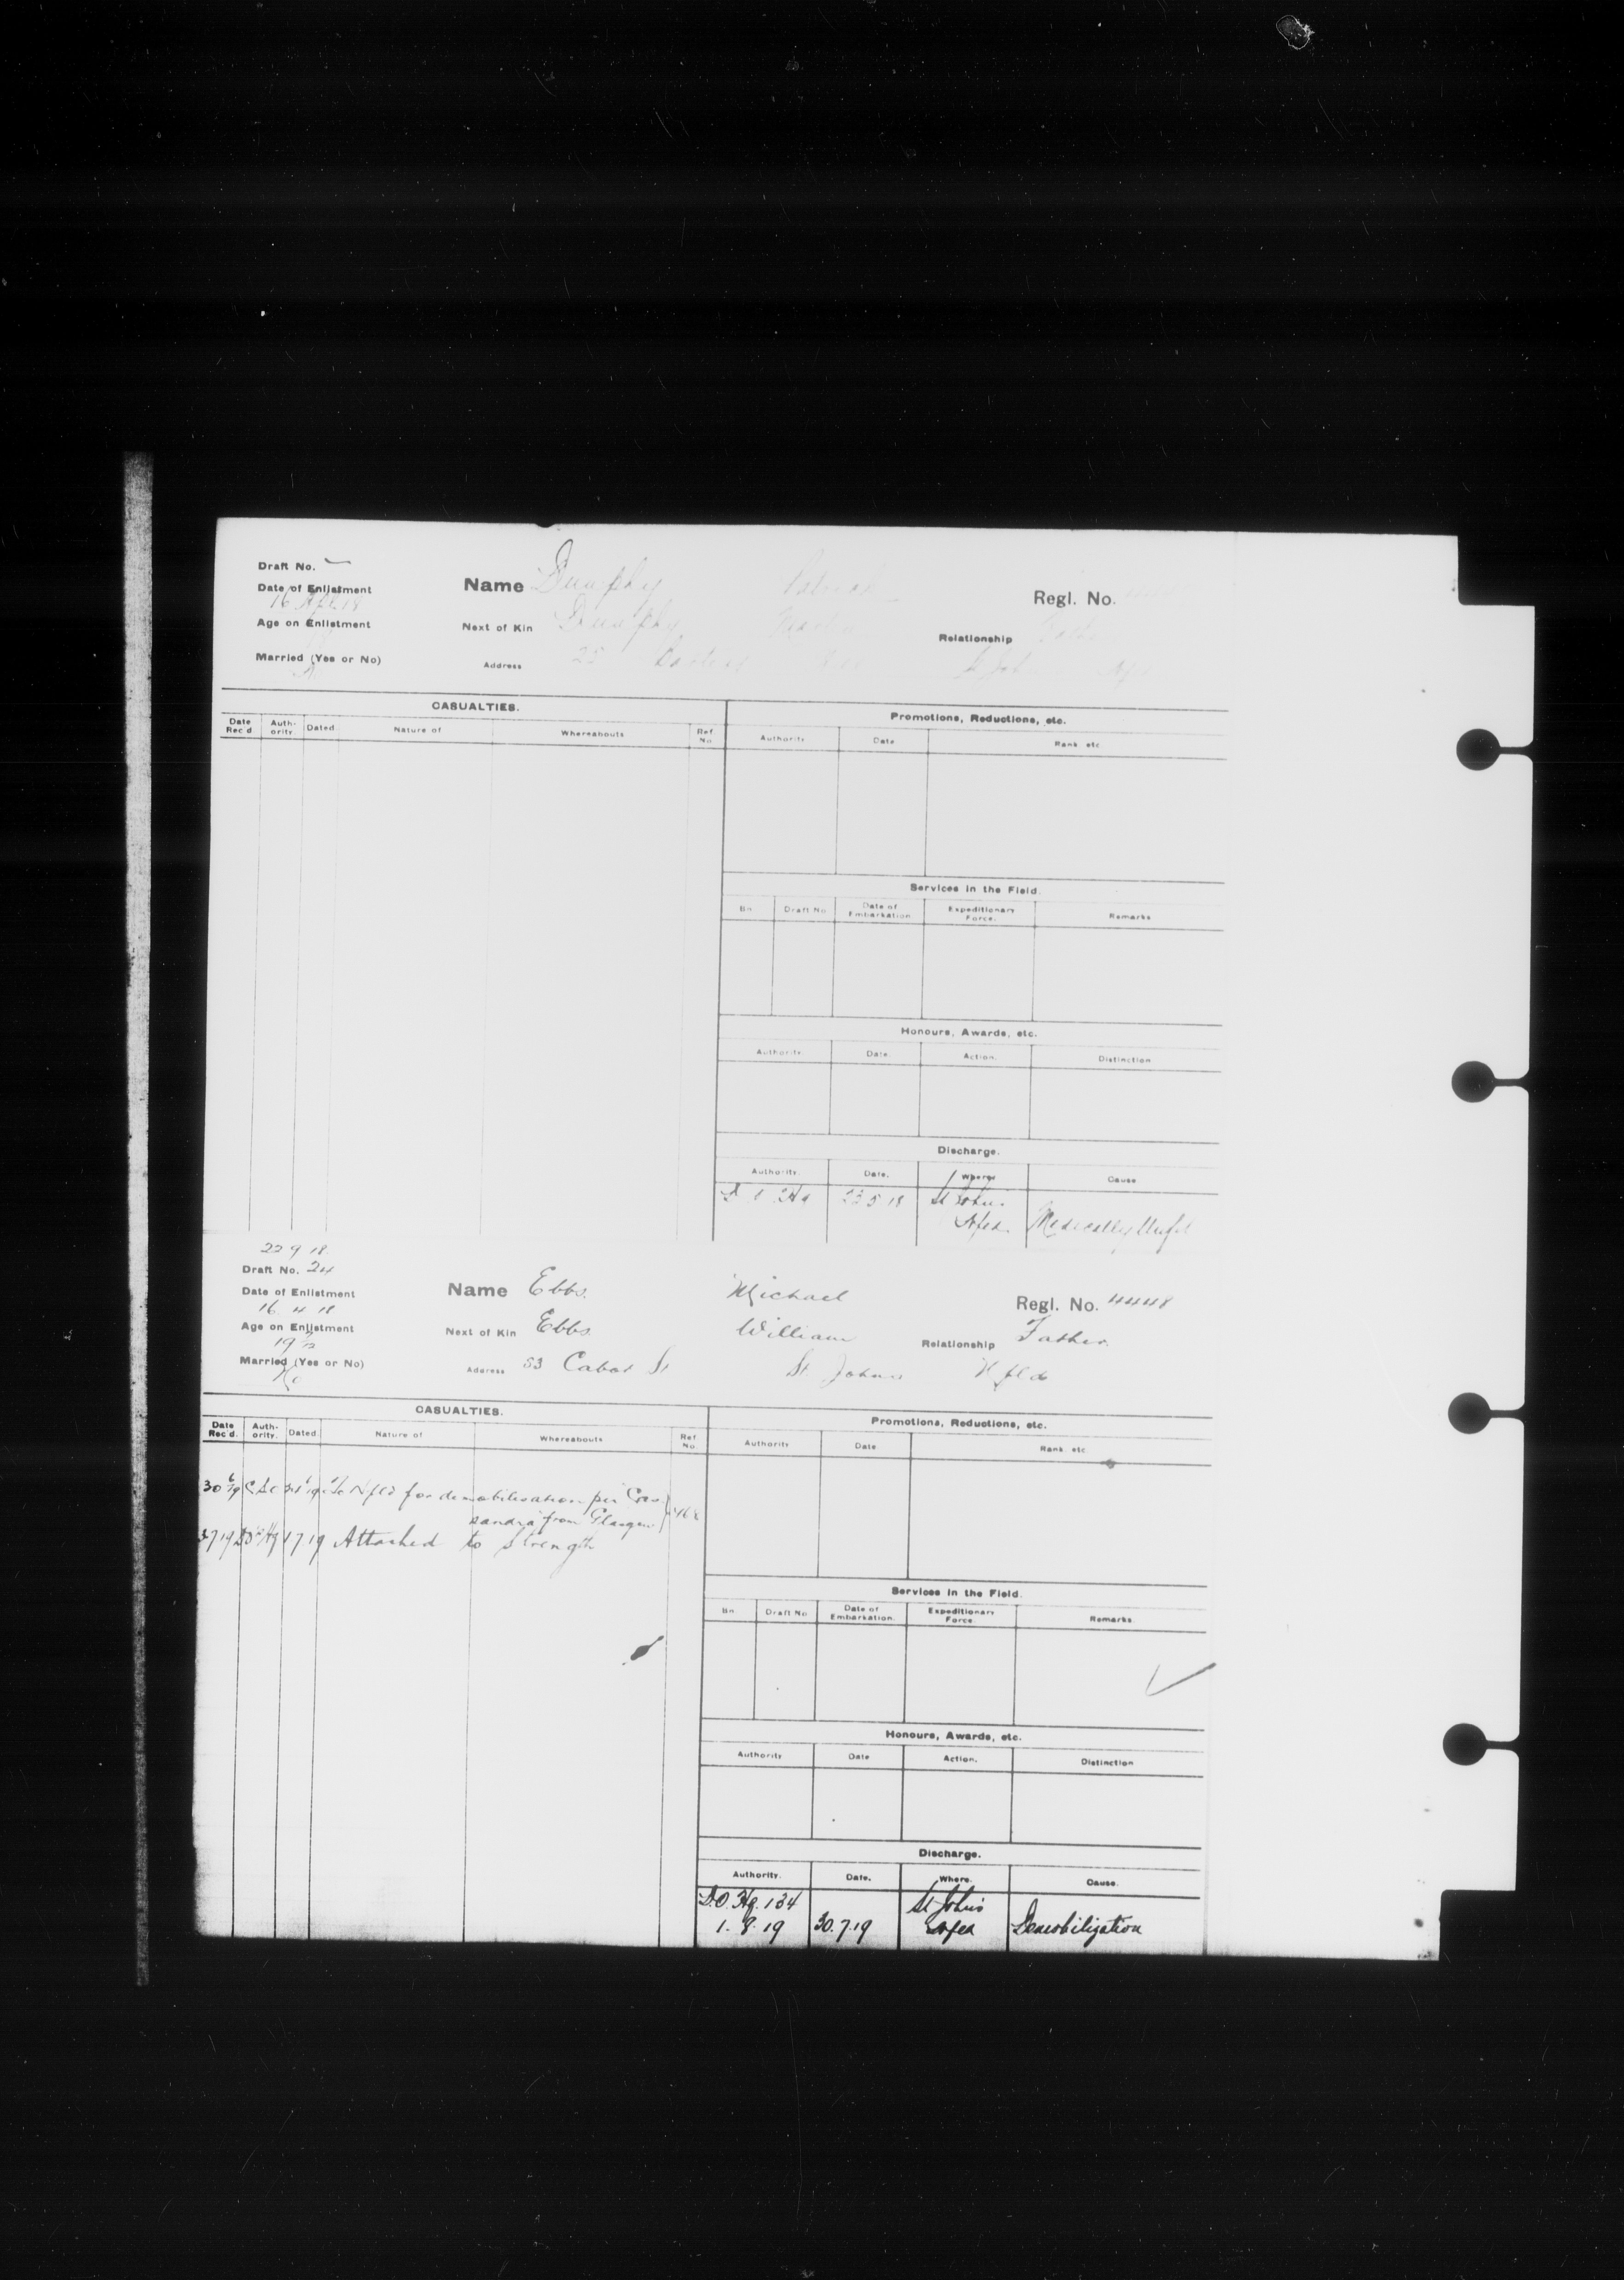 Draft No. —
Date of Enlistment
16 Apl 18
Age on Enlistment
Married (Yes or No)
Name Dunphy Patrick
Regl. No.
Next of Kin Dunphy
Relationship
Address 25
CASUALTIES.
Date Rec'd Auth-ority. Dated. Nature of Whereabouts Ref No.
Promotions, Reductions, etc.
Authority Date Rank etc
Services in the Field.
Bn Draft No Date of Embarkation Expeditionary Force. Remarks
Honours, Awards, etc.
Authority Date. Action. Distinction
Discharge.
Authority. Date. Where Cause
23 5 18 St Johns
Nfld. Medically Unfit
22 9 18.
Draft No. 24
Date of Enlistment
16 4 18
Age on Enlistment
Married (Yes or No)
No
Name Ebbs. Michael
Regl. No. 4448
Next of Kin Ebbs William
Relationship Father.
Address 53 Cabot St St Johns Nfld
CASUALTIES.
Date Rec'd. Auth-ority. Dated. Nature of Whereabouts Ref No.
To Nfld for demobilisation per "Cas-
sandra" from Glasgow
Attached to Strength
Promotions, Reductions, etc.
Authority Date Rank etc
Services in the Field.
Bn Draft No Date of Embarkation. Expeditionary Force. Remarks
Honours, Awards, etc.
Authority Date Action. Distinction
Discharge.
Authority. Date. Where. Cause.
D.O. Hq. 134 St Johns
1. 8. 19 30.7.19 Nfld Demobilization